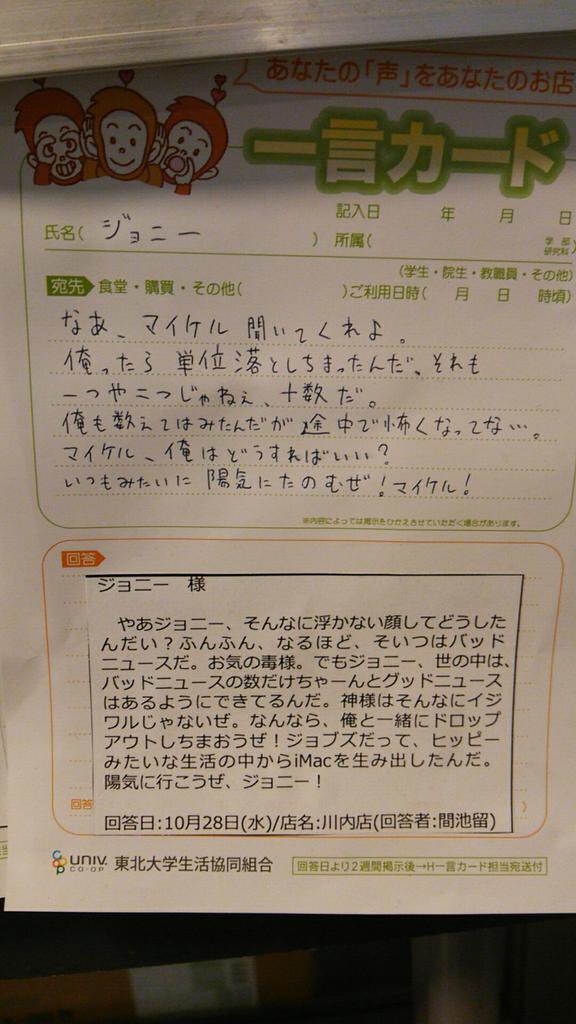 あなたの「声」をあなたのお店
一言カード
記入日 年 月 日
氏名( ジョニー ) 所属( 学部 研究科 )
(学生・院生・教職員・その他)
宛先 食堂・購買・その他( )ご利用日時( 月 日 時頃)
なあ、マイケル 聞いてくれよ。
俺ったら 単位落としちまったんだ、それも
一つや二つじゃねぇ、十数だ。
俺も数えてはみたんだが 途中で怖くなってな…。
マイケル、俺はどうすればいい?
いつもみたいに 陽気にたのむぜ!マイケル!
※内容によっては掲示をひかえさせていただく場合があります。
回答
ジョニー 様
やあジョニー、そんなに浮かない顔してどうした
んだい?ふんふん、なるほど、そいつはバッド
ニュースだ。お気の毒様。でもジョニー、世の中は、
バッドニュースの数だけちゃーんとグッドニュース
はあるようにできてるんだ。神様はそんなにイジ
ワルじゃないぜ。なんなら、俺と一緒にドロップ
アウトしちまおうぜ!ジョブズだって、ヒッピー
みたいな生活の中からiMacを生み出したんだ。
陽気に行こうぜ、ジョニー!
回答日:10月28日(水)/店名:川内店(回答者:間池留)
回答 )
UNIV. CO-OP 東北大学生活協同組合 回答日より2週間掲示後→H一言カード担当宛送付